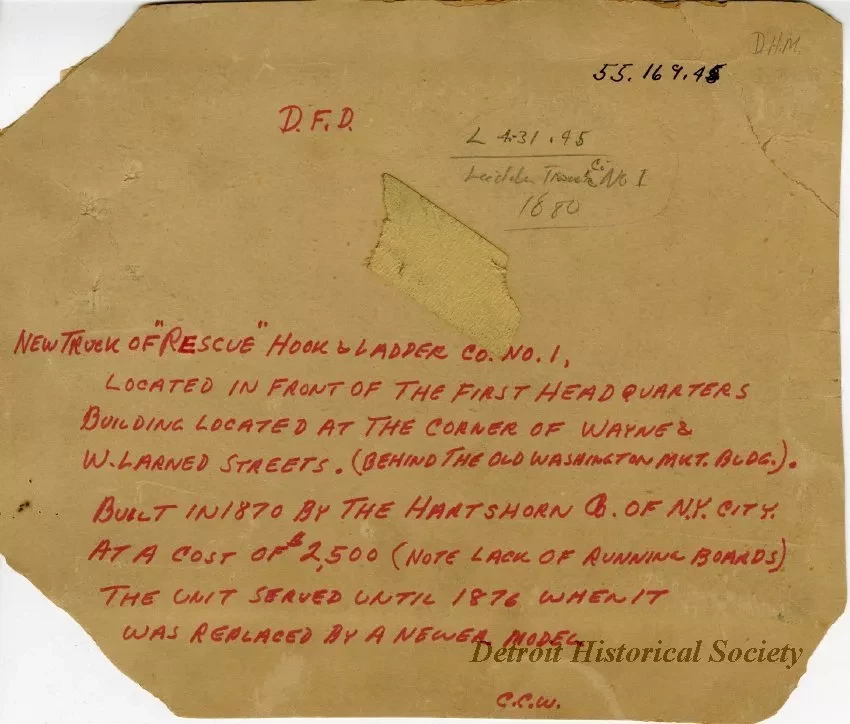 D.H.M.
55.169.45
D.F.D.
L 4.31.45
Ladder Truck Co. No 1
1880
NEW TRUCK OF "RESCUE" HOOK & LADDER CO. NO. 1,
LOCATED IN FRONT OF THE FIRST HEADQUARTERS
BUILDING LOCATED AT THE CORNER OF WAYNE &
W. LARNED STREETS. (BEHIND THE OLD WASHINGTON MKT. BLDG.).
BUILT IN 1870 BY THE HARTSHORN Co. OF N.Y. CITY.
AT A COST OF $2,500 (NOTE LACK OF RUNNING BOARDS)
THE UNIT SERVED UNTIL 1876 WHEN IT
WAS REPLACED BY A NEWER MODEL
Detroit Historical Society
C.C.W.